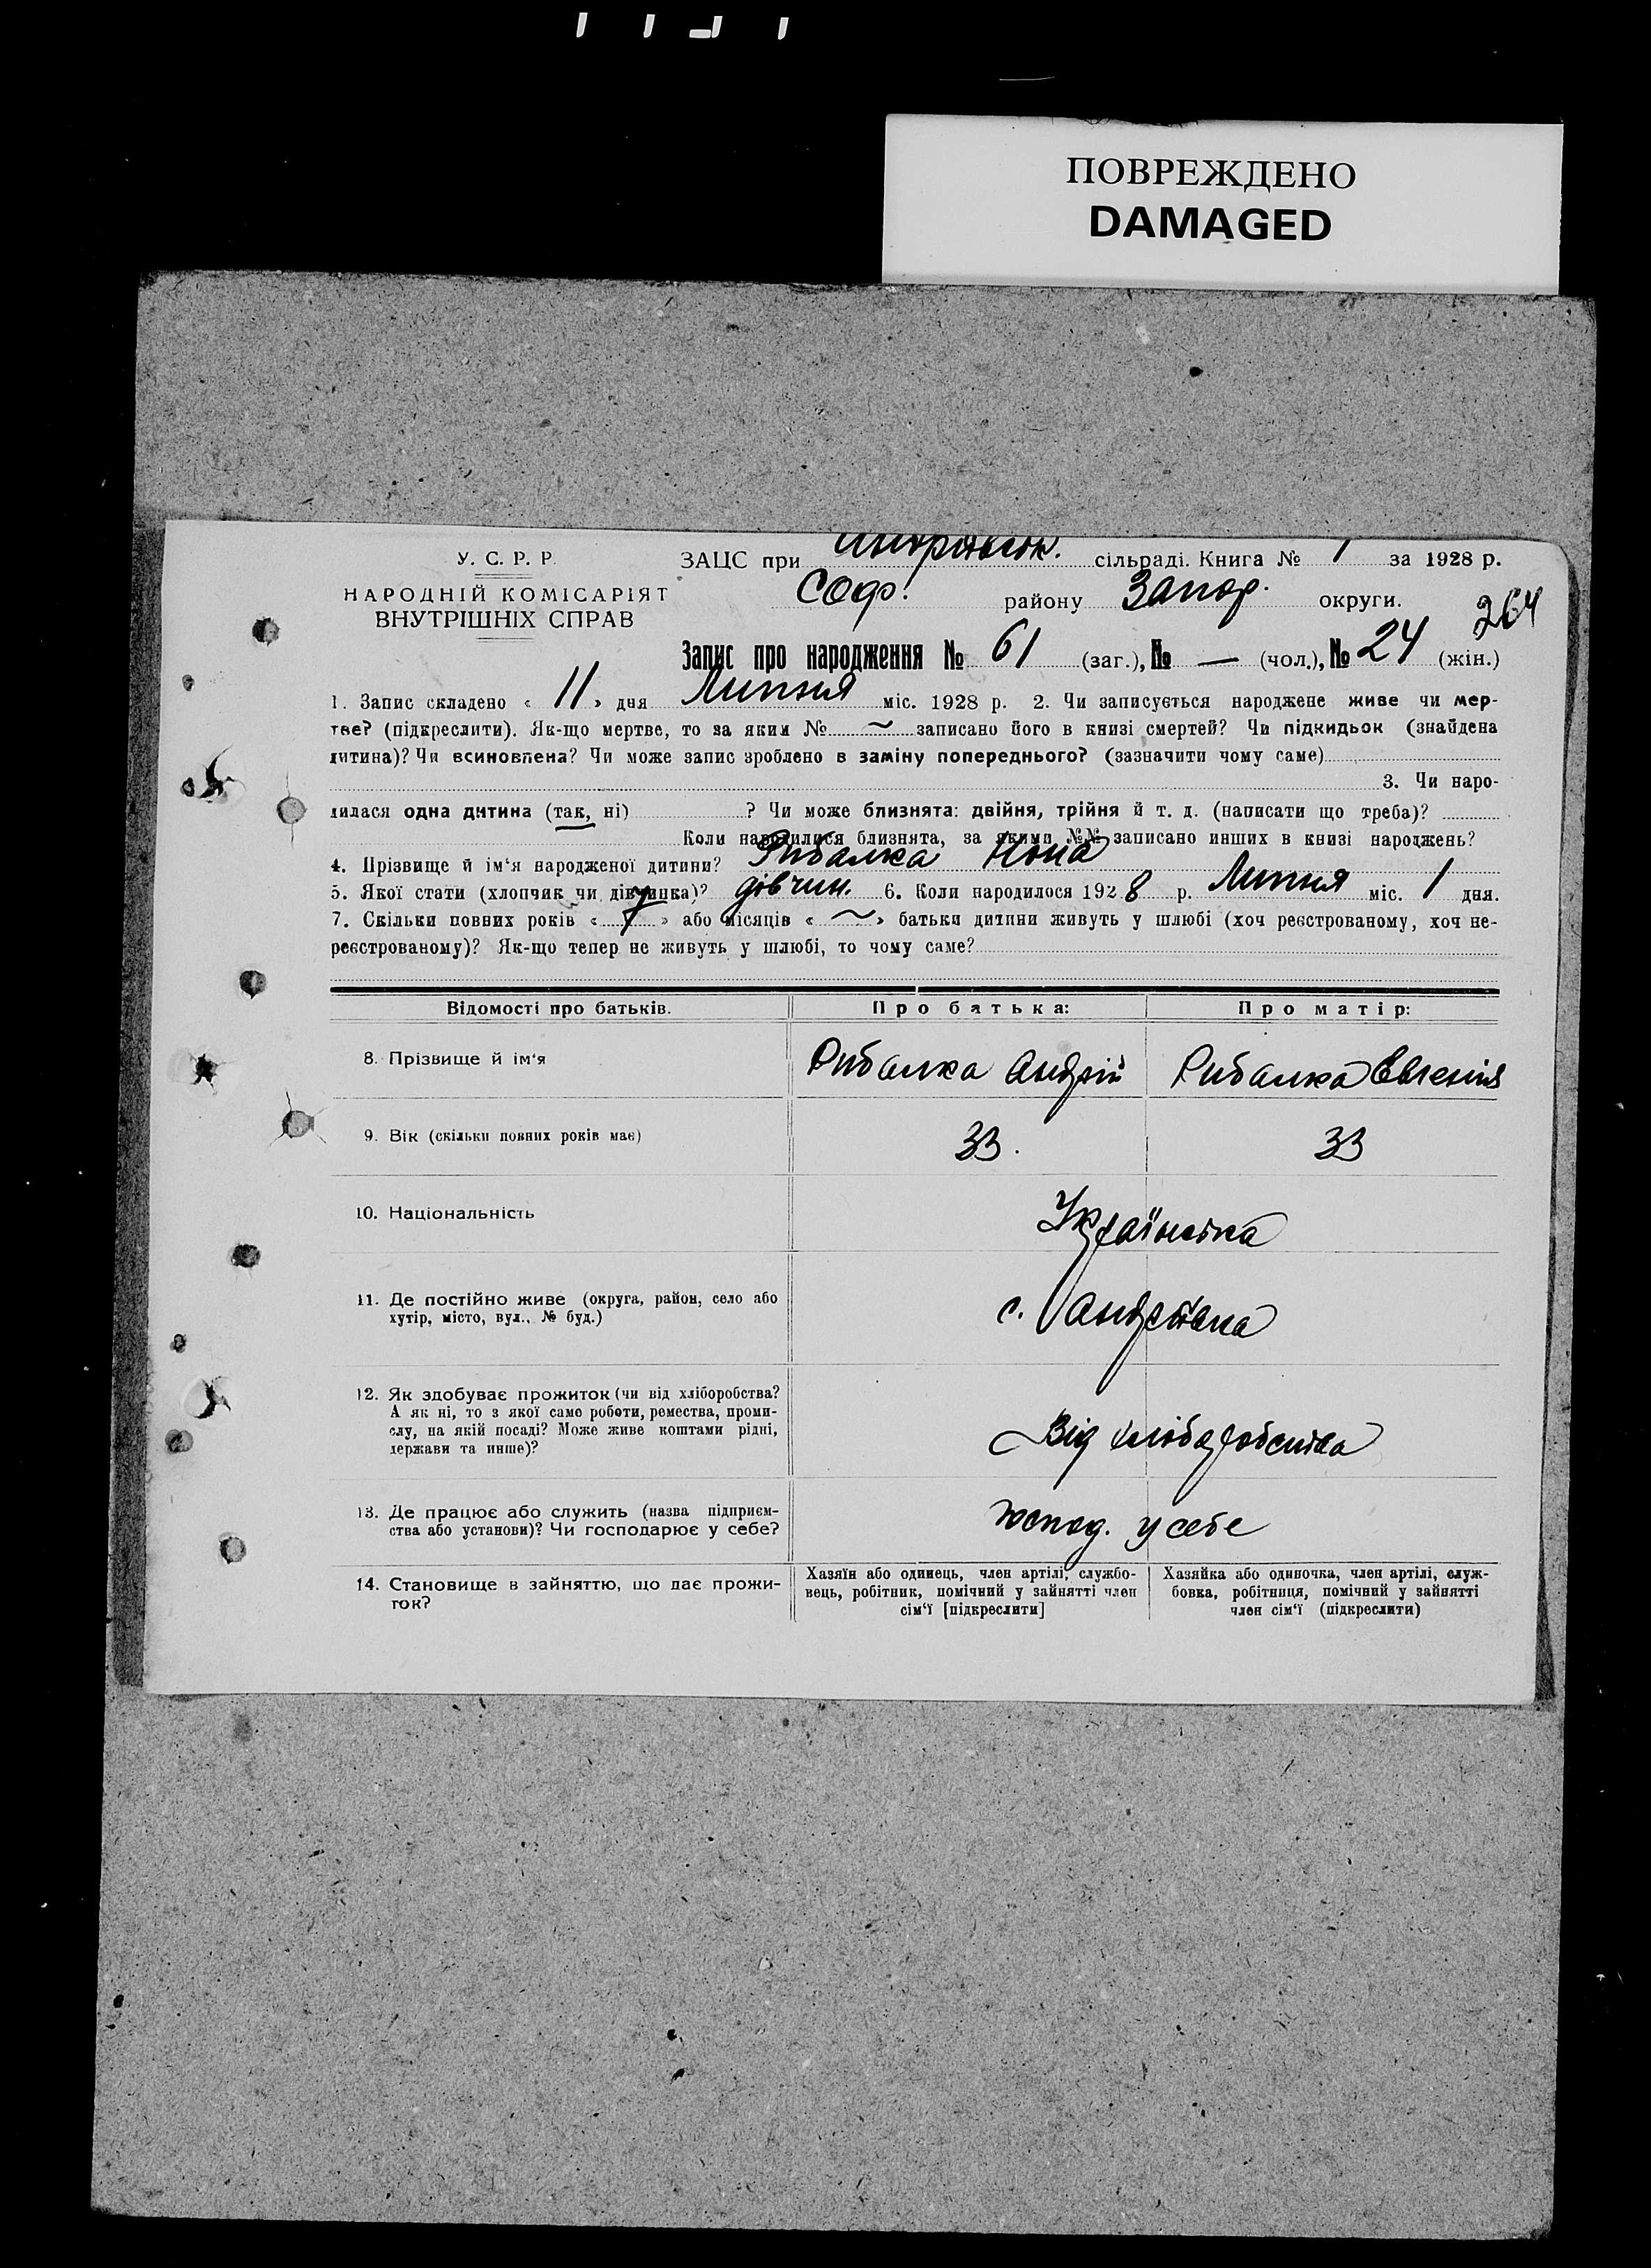 ПОВРЕЖДЕНО
DAMAGED
У. С. Р. Р.
НАРОДНІЙ КОМІСАРІЯТ
ВНУТРІШНІХ СПРАВ
ЗАЦС при сільраді. Книга № 1 за 1928 р.
Соф. району Запор. округи.
264
Запис про народження № 61 (заг.), № — (чол.), № 24 (жін.)
1. Запис складено « 11 » дня Липня міс. 1928 р. 2. Чи записується народжене живе чи мер-
тве? (підкреслити). Як-що мертве, то за яким № ~ записано його в книзі смертей? Чи підкидьок (знайдена
дитина)? Чи всиновлена? Чи може запис зроблено в заміну попереднього? (зазначити чому саме)
3. Чи наро-
дилася одна дитина (так, ні) ? Чи може близнята: двійня, трійня й т. д. (написати що треба)?
Коли народилися близнята, за якими №№ записано инших в книзі народжень?
4. Прізвище й ім‘я народженої дитини? Рибалка Нона
5. Якої стати (хлопчик чи дівчинка)? дівчин. 6. Коли народилося 1928 р. Липня міс. 1 дня.
7. Скільки повних років « 7 » або місяців « ~ » батьки дитини живуть у шлюбі (хоч реєстрованому, хоч не-
реєстрованому)? Як-що тепер не живуть у шлюбі, то чому саме?
Відомості про батьків. Про батька: Про матір:
8. Прізвище й ім‘я Рибалка Андрій Рибалка Євгенія
9. Вік (скільки повних років має) 33. 33
10. Національність Українська
11. Де постійно живе (округа, район, село або
хутір, місто, вул., № буд.)
с. Андріївка
12. Як здобуває прожиток (чи від хліборобства?
А як ні, то з якої само роботи, ремества, проми-
слу, на якій посаді? Може живе коштами рідні,
держави та инше)?
Від хліборобства
13. Де працює або служить (назва підприєм-
ства або установи)? Чи господарює у себе?
господ. у себе
14. Становище в зайняттю, що дає прожи-
ток?
Хазяїн або одинець, член артілі, службо-
вець, робітник, помічний у зайнятті член
сім‘ї [підкреслити]
Хазяйка або одиночка, член артілі, служ-
бовка, робітниця, помічний у зайнятті
член сім‘ї (підкреслити)